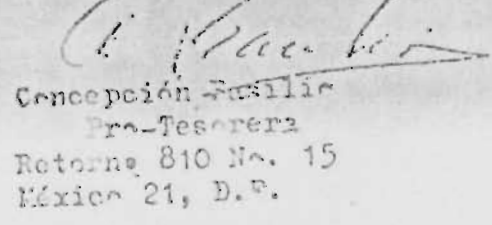 Concepción Basilio
Pro-Tesorera
Retorno 810 No. 15
México 21, D.F.